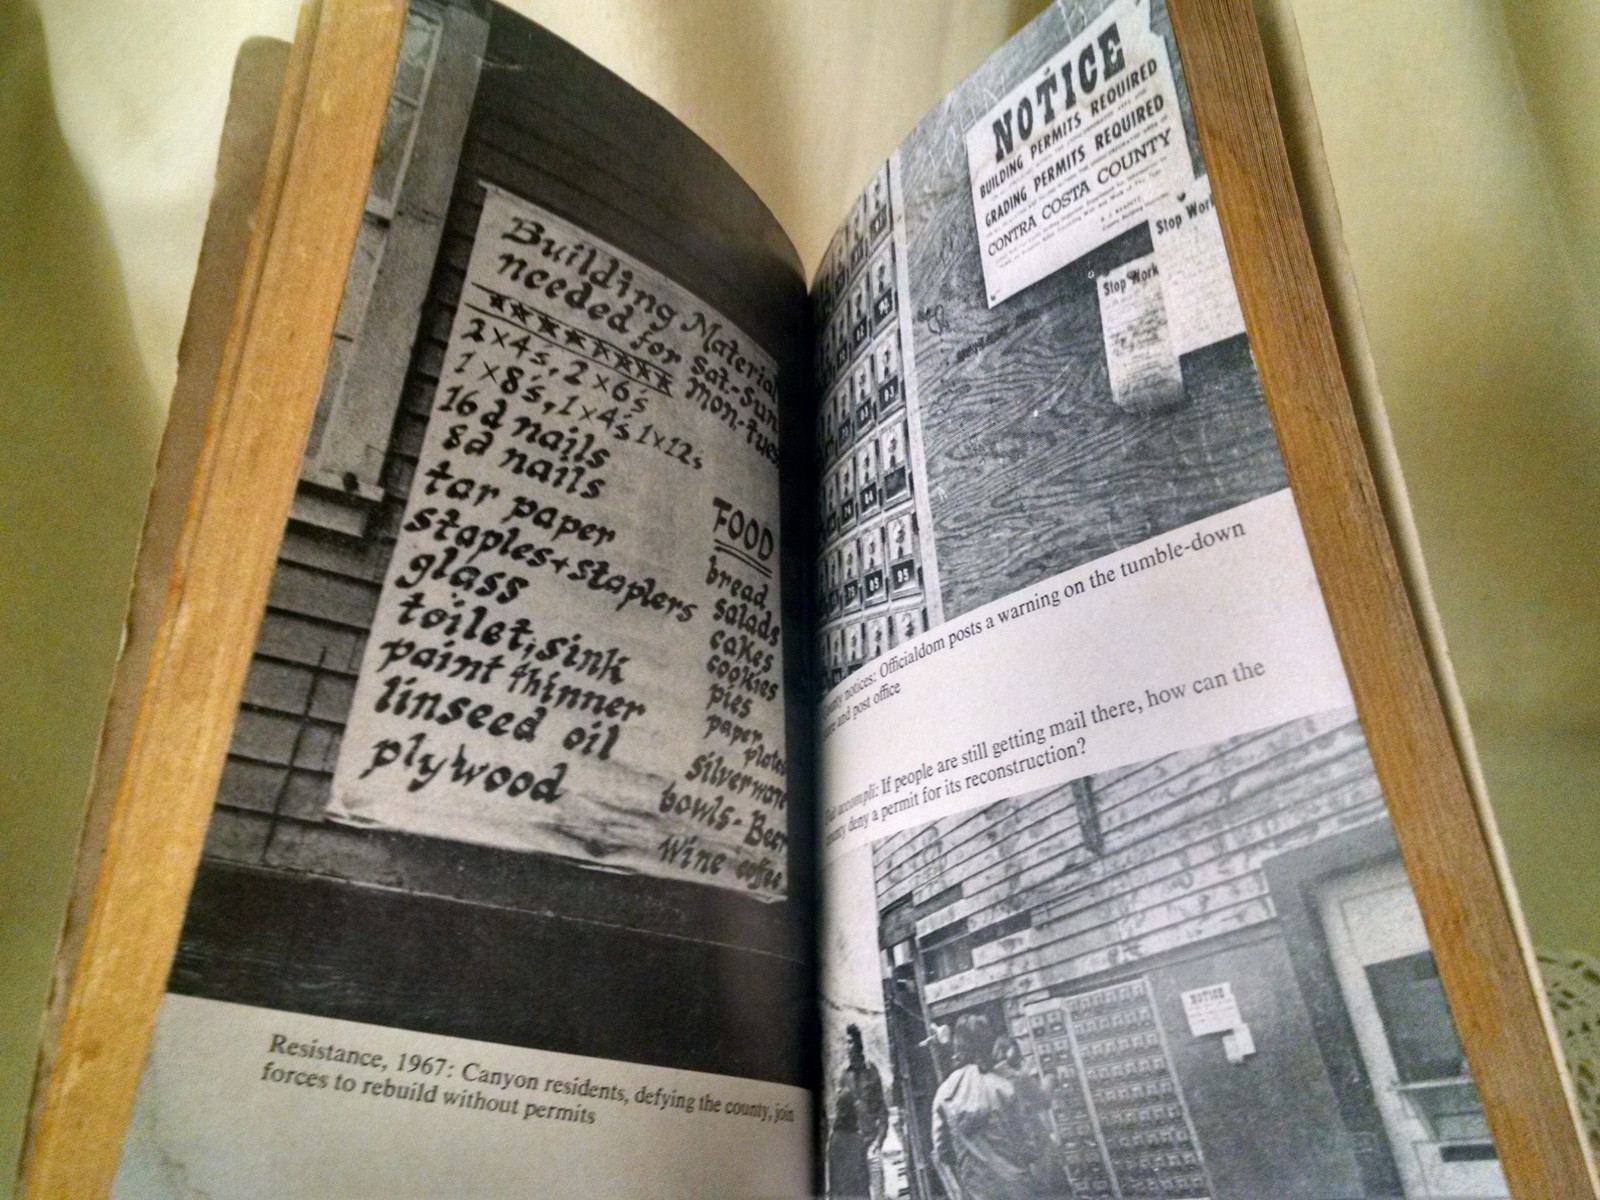 Building Material
needed for Sat.-Sun.
Mon.-Tues
2x4s, 2x6's
1x8's, 1x4's 1x12s
16d nails
8d nails
tar paper
staples+staplers
glass
toilet, sink
paint thinner
linseed oil
plywood
FOOD
bread,
salads
cakes
cookies
pies
paper
plates
silverware
bowls- Beer
wine coffee
Resistance, 1967: Canyon residents, defying the county, join
forces to rebuild without permits
NOTICE
BUILDING PERMITS REQUIRED
GRADING PERMITS REQUIRED
CONTRA COSTA COUNTY
Stop Work
Stop Work
93
94
85
95
notices: Officialdom posts a warning on the tumble-down
and post office
accompli: If people are still getting mail there, how can the
deny a permit for its reconstruction?
NOTICE